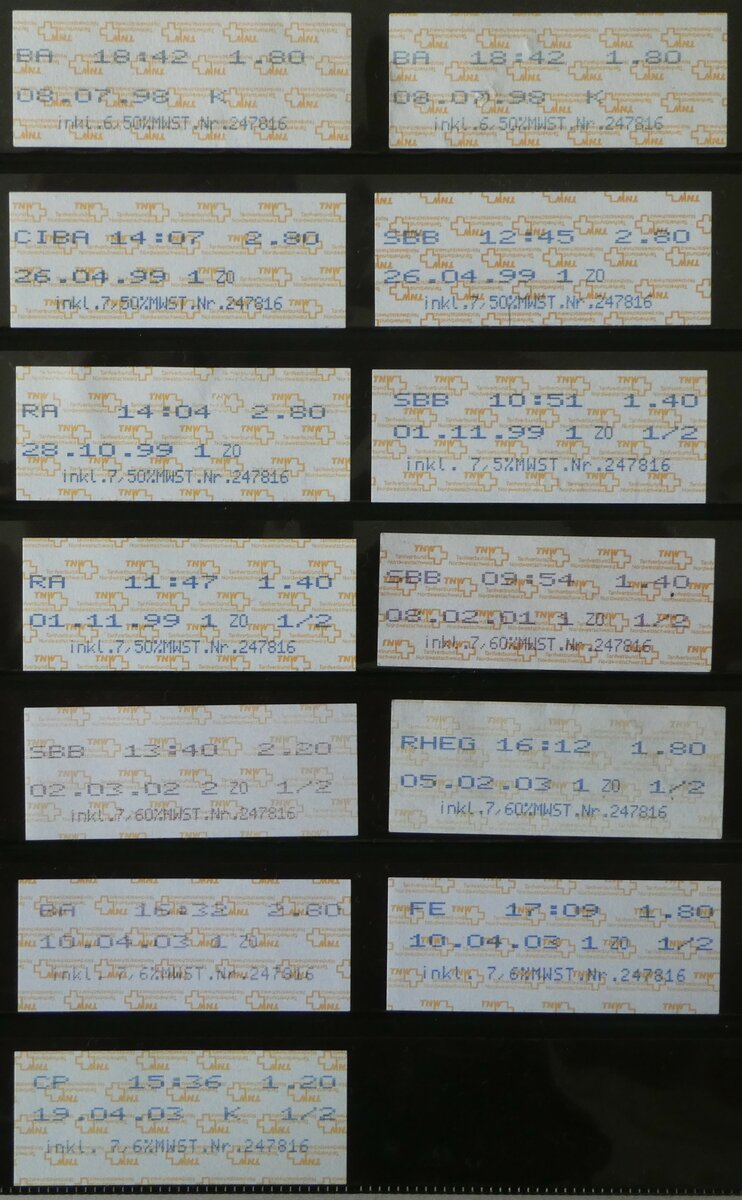 BA 18:42 1.80
08.07.98 K
inkl.6,50%MWST.Nr.247816
BA 18:42 1.80
08.07.98 K
inkl.6,50%MWST.Nr.247816
CIBA 14:07 2.80
26.04.99 1 ZO
inkl.7,50%MWST.Nr.247816
SBB 12:45 2.80
26.04.99 1 ZO
inkl.7,50%MWST.Nr.247816
RA 14:04 2.80
28.10.99 1 ZO
inkl.7,50%MWST.Nr.247816
SBB 10:51 1.40
01.11.99 1 ZO 1/2
inkl. 7,5%MWST.Nr.247816
RA 11:47 1.40
01.11.99 1 ZO 1/2
inkl.7,50%MWST.Nr.247816
SBB 09:54 1.40
08.02.01 1 ZO 1/2
inkl.7,60%MWST.Nr.247816
SBB 13:40 2.20
02.03.02 2 ZO 1/2
inkl.7,60%MWST.Nr.247816
RHEG 16:12 1.80
05.02.03 1 ZO 1/2
inkl.7,60%MWST.Nr.247816
BA 16:33 2.80
10.04.03 1 ZO
inkl. 7,6%MWST.Nr.247816
FE 17:09 1.80
10.04.03 1 ZO 1/2
inkl. 7,6%MWST.Nr.247816
CP 15:36 1.20
19.04.03 K 1/2
inkl. 7,6%MWST.Nr.247816